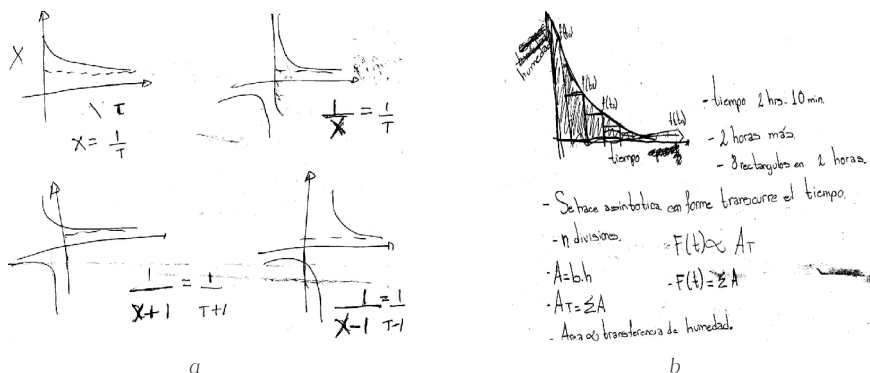 X
τ
X = 1/T
1/X = 1/T
1/X+1 = 1/T+1
1/X-1 = 1/T-1
a
humedad
f(t₀)
f(t₂)
f(t₃)
f(tₙ)
tiempo
- tiempo 2 hrs. 10 min.
- 2 horas más.
- 8 rectangulos en 2 horas.
- Se hace assintotica con forme transcurre el tiempo.
- n divisiones.
- F(t) ∝ A_T
- A=b.h
- F(t) = ΣA
- A_T = ΣA
- Area ∝ transferencia de humedad.
b